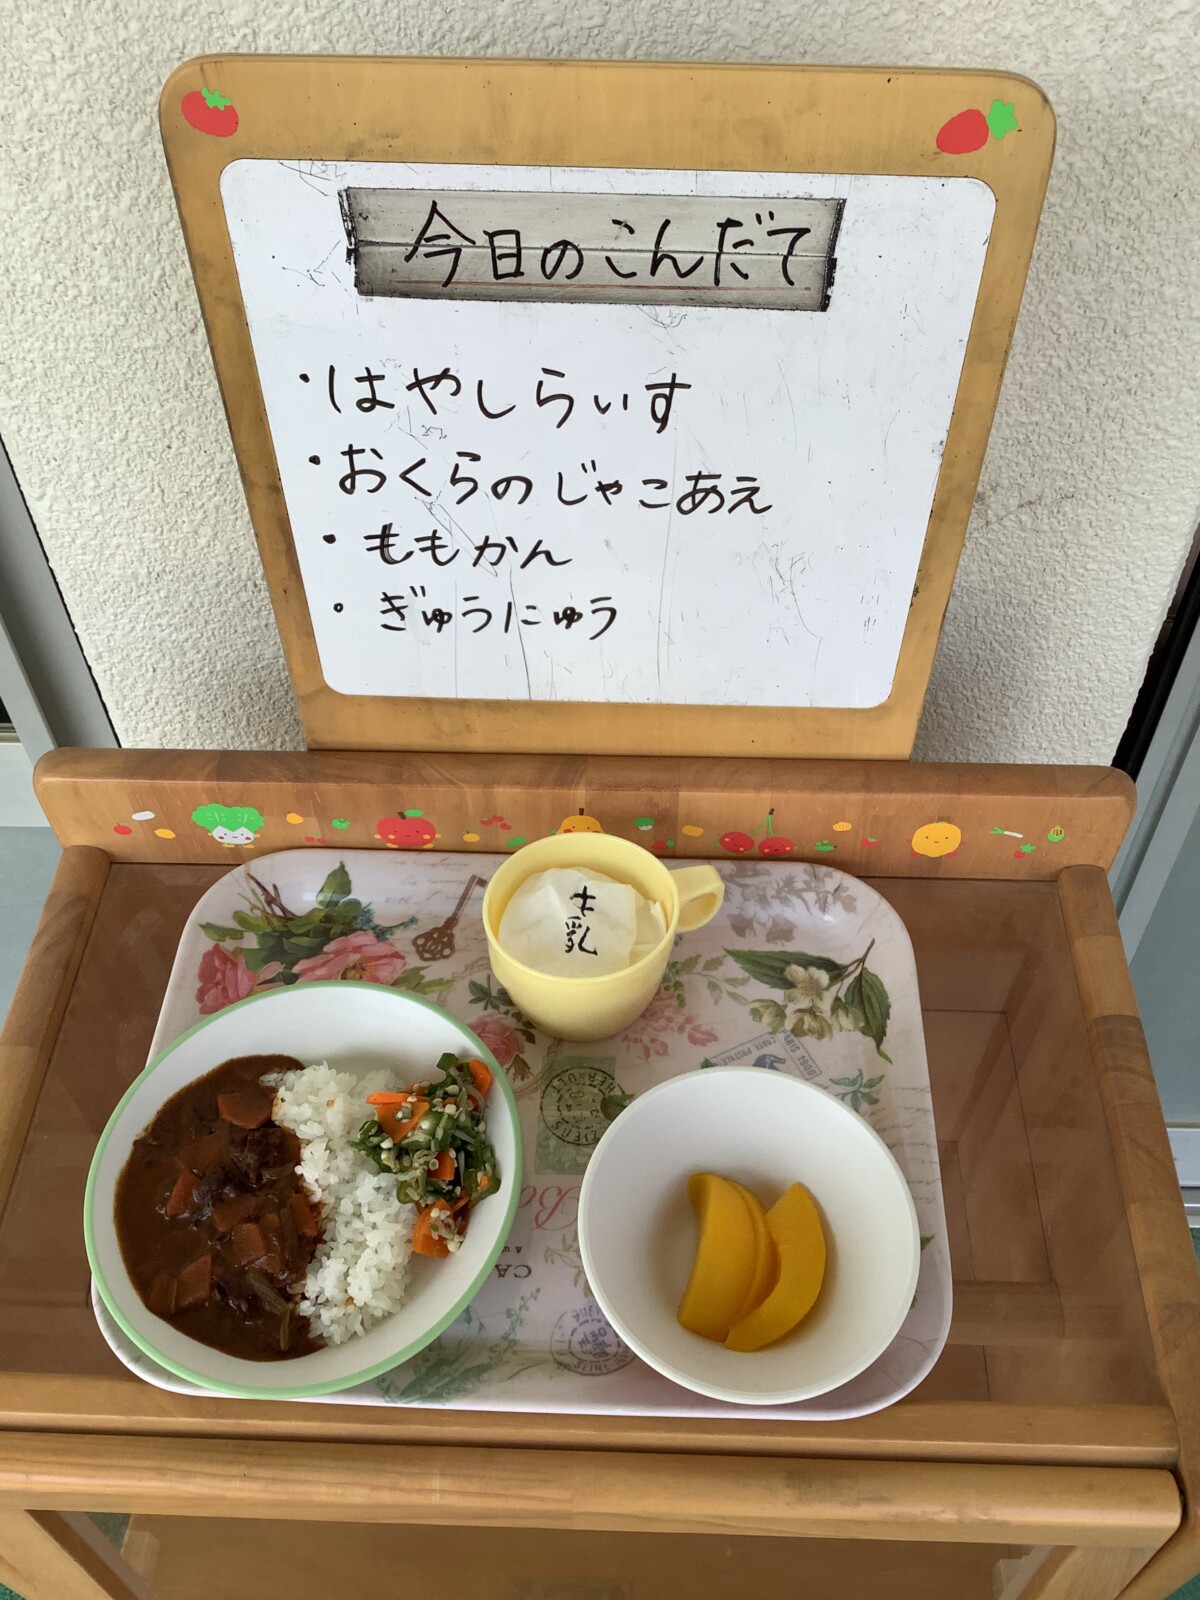 今日のこんだて
・はやしらいす
・おくらのじゃこあえ
・ももかん
・ぎゅうにゅう
牛乳
CARTE POSTALE